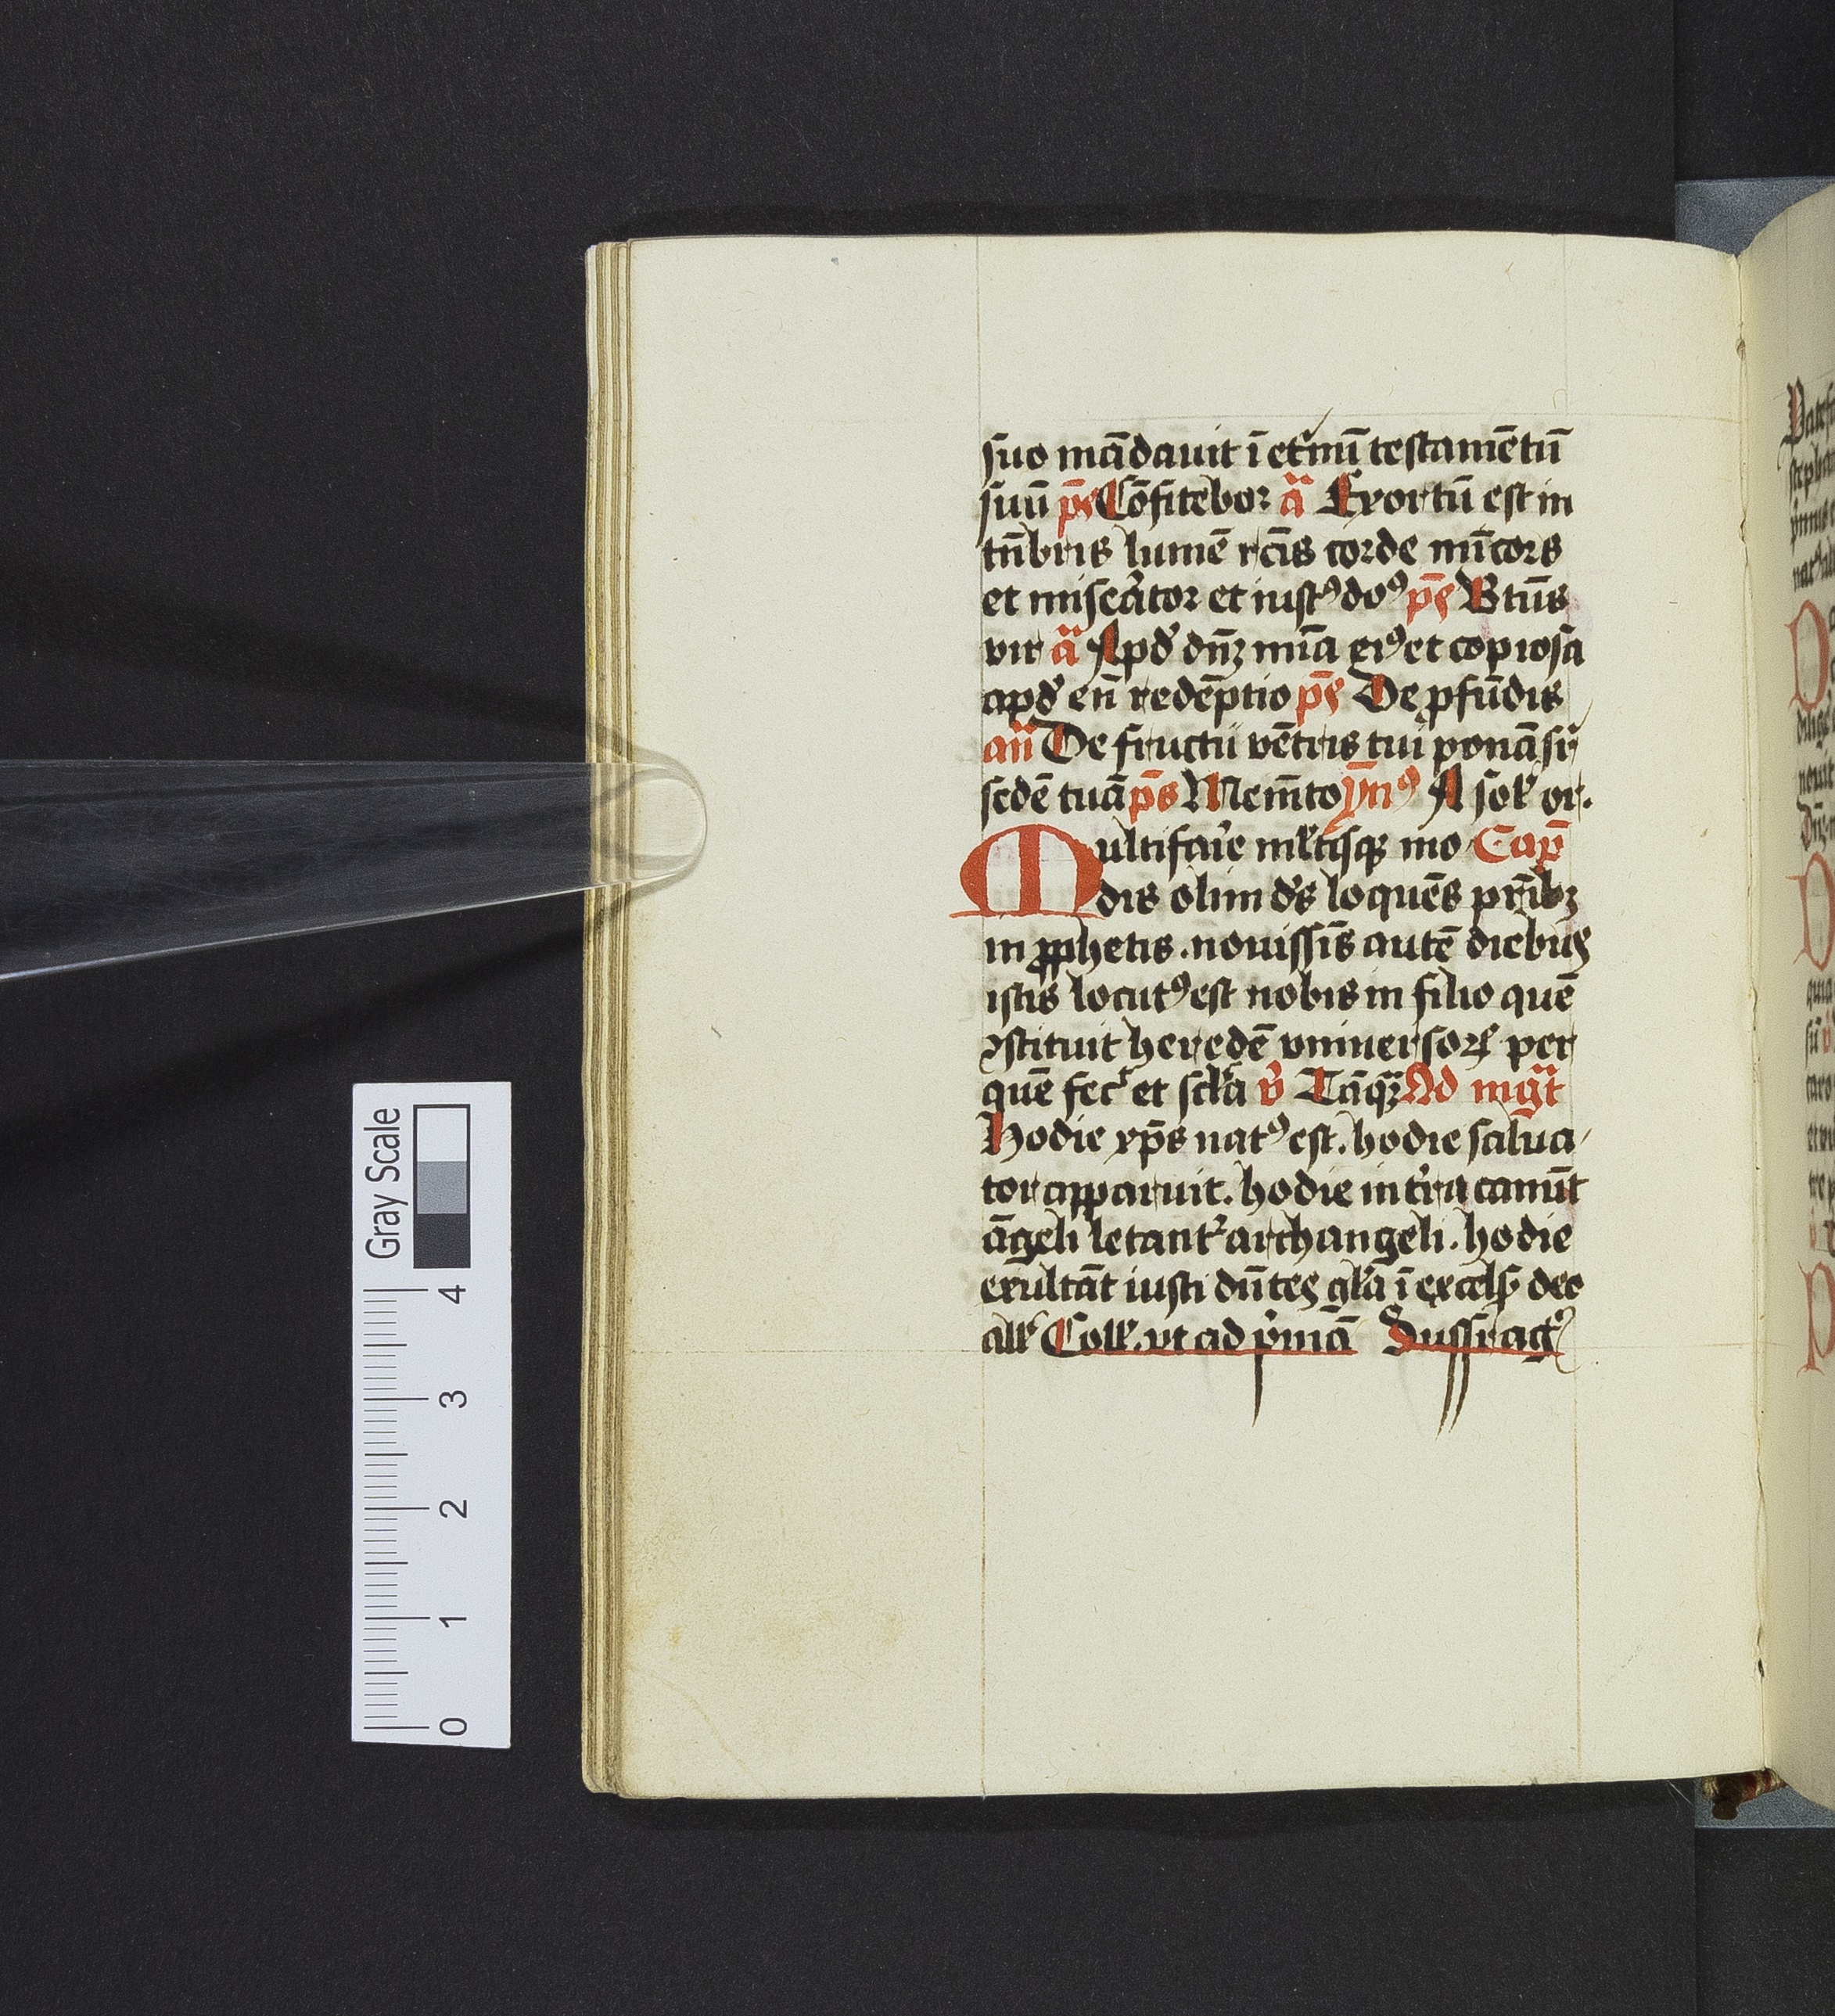 suo mādauit ī et̾nū testamētū
suū ps̄ Cōfitebor ā Exortū est in
tn̄bris lumē rc̄is corde mīcors
et miser̾ator et iustꝰ doꝰ ps̄ Btūs
vir ā Apd̾ dn̄ꝫ mīa eiꝰ et copiosa
apd̾ eū redēptio ps̄ De ꝓfūdis
an̄ De fructu vētris tui ponā sr̄
sedē tuā ps̄ Mem̄to ym̄ꝰ A sol̾ or.
Multifar̾e ml̾tisqꝫ mo Cap̄
dis olim d̾s loquēs pr̄ibꝫ
in ꝓphetis. nouissīs autē diebus
istis locutꝰ est nobis in filio quē
ꝯstituit heredē vniuersoꝝ per
quē fec̾ et scl̾a v̾ Tāqꝫ Ad mgt̄
Hodie xp̄s natꝰ est. hodie salua
tor apparuit. hodie in t̾ra canūt
āgeli letant᷑ archangeli. hodie
exultāt iusti dn̄tes gl̾a ī excels̾ deo
all̾ Coll̾. vt ad p̾mā Suffrag̾